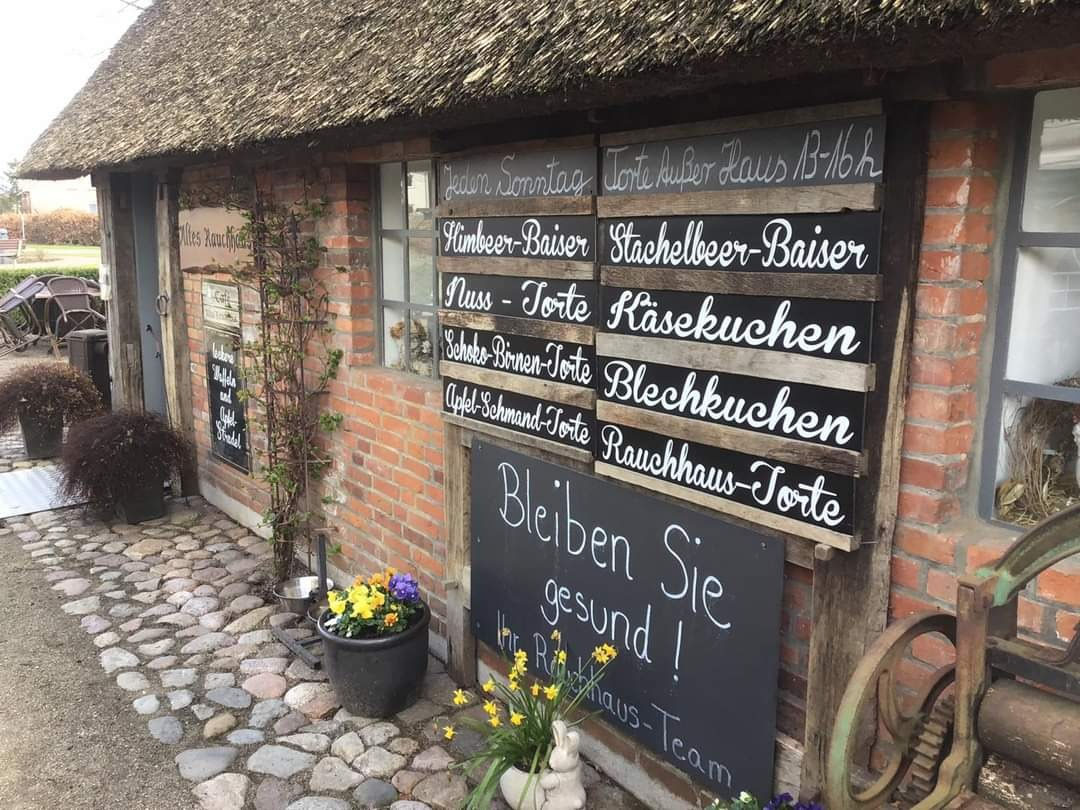 Altes Rauchhaus
Café
leckere
Waffeln
und
Apfel-
Strudel
Jeden Sonntag
Himbeer-Baiser
Nuss - Torte
Schoko-Birnen-Torte
Apfel-Schmand-Torte
Torte Außer Haus 13-16h
Stachelbeer-Baiser
Käsekuchen
Blechkuchen
Rauchhaus-Torte
Bleiben Sie
gesund!
Ihr Rauchhaus-Team